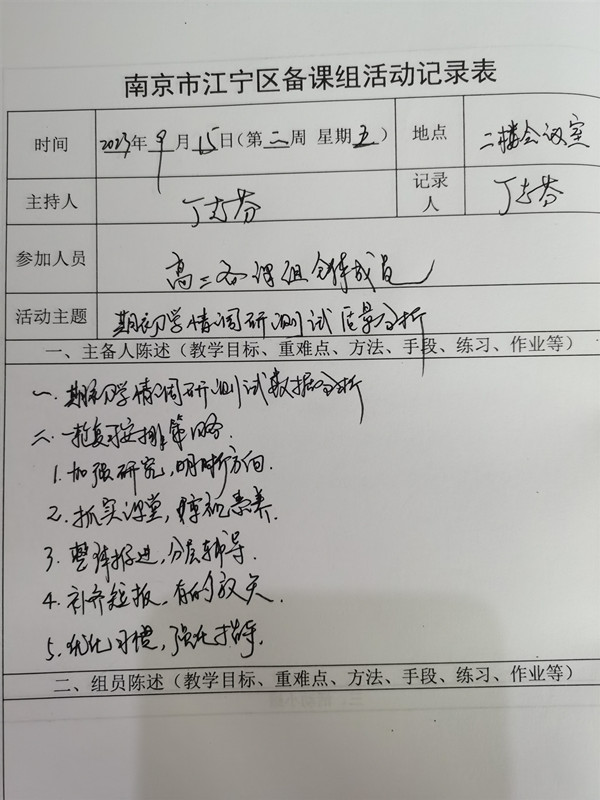 南京市江宁区备课组活动记录表
时间 2023年9月15日(第二周 星期五) 地点 二楼会议室
主持人 丁志芬 记录人 丁志芬
参加人员 高三备课组全体成员
活动主题 期初学情调研测试质量分析
一、主备人陈述（教学目标、重难点、方法、手段、练习、作业等）
一. 期初学情调研测试数据分析
二. 一轮复习安排策略.
1. 加强研究,明晰方向.
2. 抓实课堂,素养.
3. 整体推进,分层辅导.
4. 补齐短板,有的放矢.
5. 优化习惯,强化指导.
二、组员陈述（教学目标、重难点、方法、手段、练习、作业等）